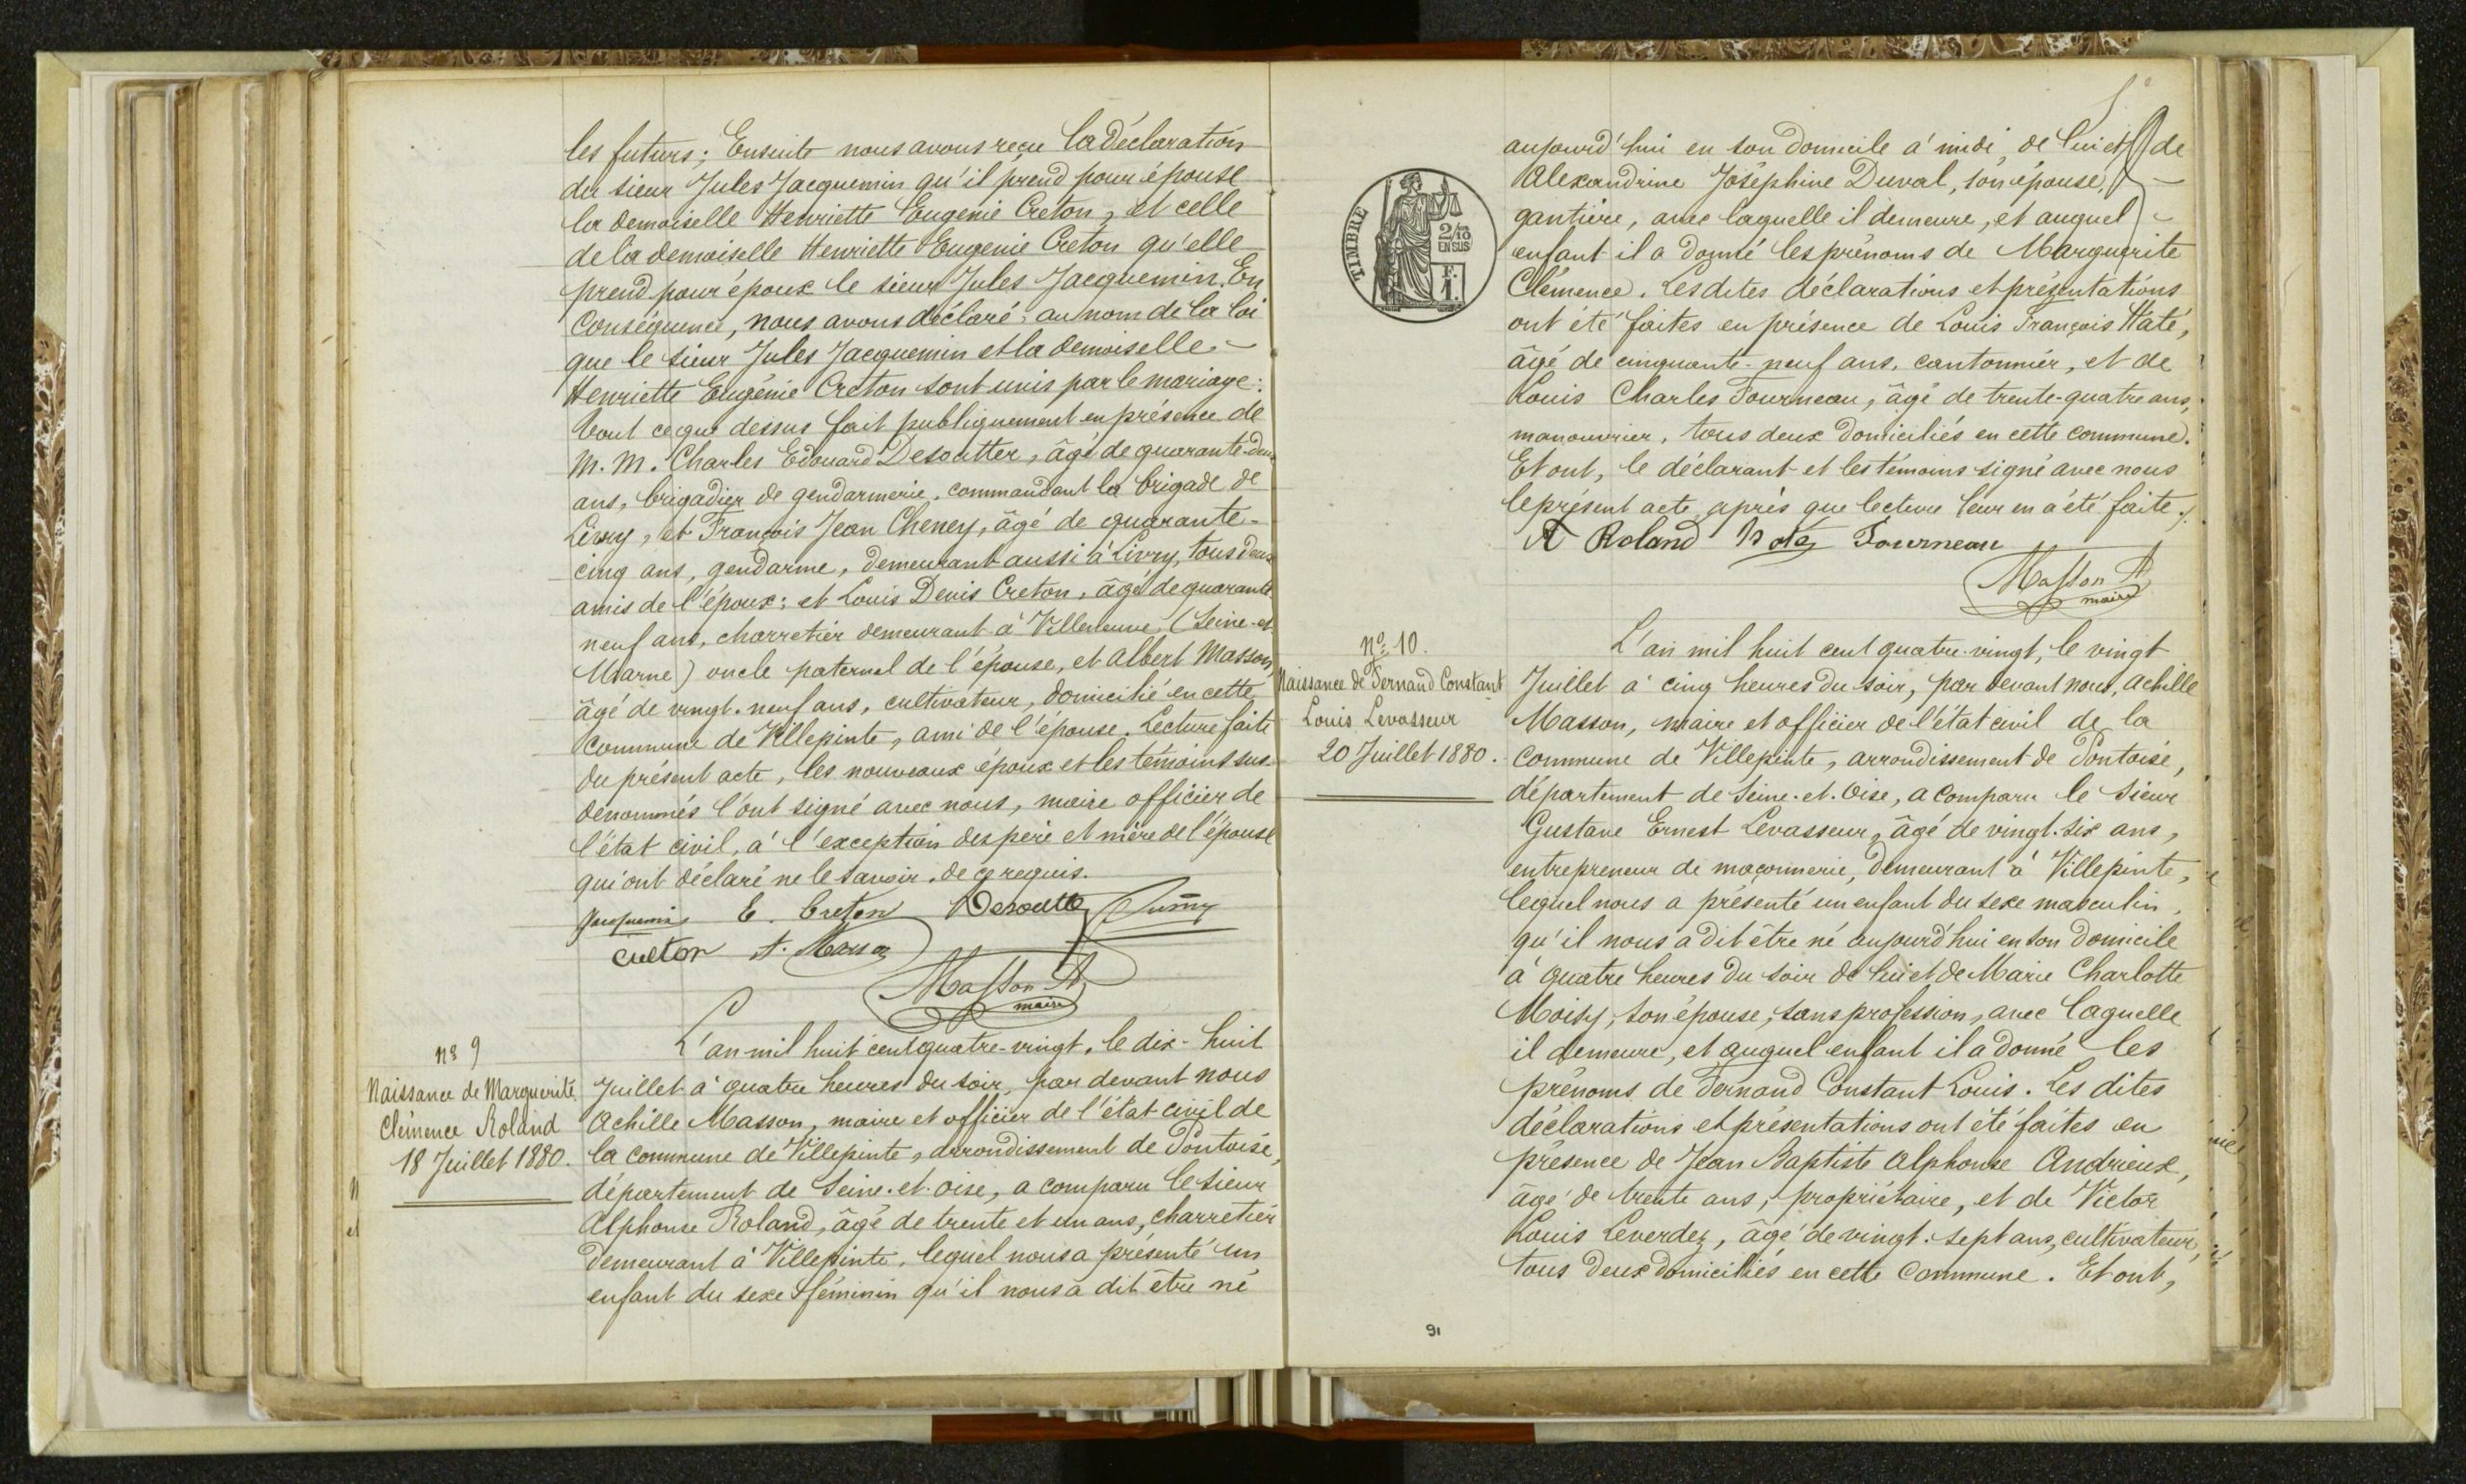 les futurs; Ensuite nous avons reçu la déclaration
du sieur Jules Jacquemin qu'il prend pour épouse
la demoiselle Henriette Eugénie Creton, et celle
de la demoiselle Henriette Eugenie Creton qu'elle
prend pour époux le sieur Jules Jacquemin. En
Conséquence, nous avons déclaré, au nom de la loi
que le sieur Jules Jacquemin et la demoiselle
Henriette Eugénie Creton sont unis par le mariage.
Tout ce que dessus fait publiquement en présence de
M. M. Charles Edouard Desoutter, âgé de quarante-deux
ans, brigadier de gendarmerie, commandant la brigade de
Livry, et François Jean Cheney, âgé de quarante-
cinq ans, gendarme, demeurant aussi à Livry, tous deux
amis de l'époux; et Louis Denis Creton, âgé de quarante
neuf ans, charretier demeurant à Villeneuve (Seine-et-
Marne) oncle paternel de l'épouse, et Albert Masson,
âgé de vingt-neuf ans, cultivateur, domicilié en cette
commune de Villepinte, ami de l'épouse. Lecture faite
du présent acte, les nouveaux époux et les témoins sus-
dénommés l'ont signé avec nous, maire officier de
l'état civil, à l'exception des père et mère de l'épouse
qui ont déclaré ne le savoir, de ce requis.
Jacquemin E. Creton Desoutter
Creton A. Masson
Masson A
maire
n° 9
Naissance de Marguerite
Clémence Roland
18 Juillet 1880.
L'an mil huit cent quatre-vingt, le dix-huit
Juillet à quatre heures du soir, par devant nous
Achille Masson, maire et officier de l'état civil de
la commune de Villepinte, arrondissement de Pontoise,
département de Seine-et-oise, a comparu le sieur
Alphonse Roland, âgé de trente et un ans, charretier
demeurant à Villepinte, lequel nous a présenté un
enfant du sexe féminin qu'il nous a dit être né
TIMBRE
2/10
EN SUS
F.
1.
aujourd'hui en son domicile à midi, de lui et de
Alexandrine Joséphine Duval, son épouse,
gantière, avec laquelle il demeure, et auquel
enfant il a donné les prénoms de Marguerite
Clémence. Les dites déclarations et présentations
ont été faites en présence de Louis François Haté,
âgé de cinquante-neuf ans, cantonnier, et de
Louis Charles Fourneau, âgé de trente-quatre ans,
manouvrier, tous deux domiciliés en cette commune.
Et ont, le déclarant et les témoins signé avec nous
le présent acte, après que lecture leur en a été faite./.
A Roland Haté Fourneau
Masson A
maire
N° 10.
Naissance de Fernand Constant
Louis Levasseur
20 Juillet 1880.
L'an mil huit cent quatre-vingt, le vingt
Juillet à cinq heures du soir, par devant nous, Achille
Masson, maire et officier de l'état civil de la
commune de Villepinte, arrondissement de Pontoise,
département de Seine-et-Oise, a comparu le Sieur
Gustave Ernest Levasseur, âgé de vingt-six ans,
entrepreneur de maçonnerie, demeurant à Villepinte,
lequel nous a présenté un enfant du sexe masculin,
qu'il nous a dit être né aujourd'hui en son domicile
à quatre heures du soir de lui et de Marie Charlotte
Moisy, son épouse, sans profession, avec laquelle
il demeure, et auquel enfant il a donné les
prénoms de Fernand Constant Louis. Les dites
déclarations et présentations ont été faites en
présence de Jean Baptiste Alphonse Andrieux,
âgé de trente ans, propriétaire, et de Victor
Louis Leverdez, âgé de vingt-sept ans, cultivateur,
tous deux domiciliés en cette Commune. Et ont,
91